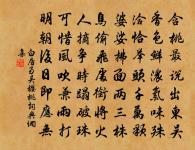 含桃最說出東吳
香色鮮濃氣味殊
洽恰舉頭千萬顆
婆娑拂面兩三株
鳥偷飛處銜將火
人摘爭時蹋破珠
可惜風吹兼雨打
明朝後日即應無
白居易吳櫻桃詞典網
集